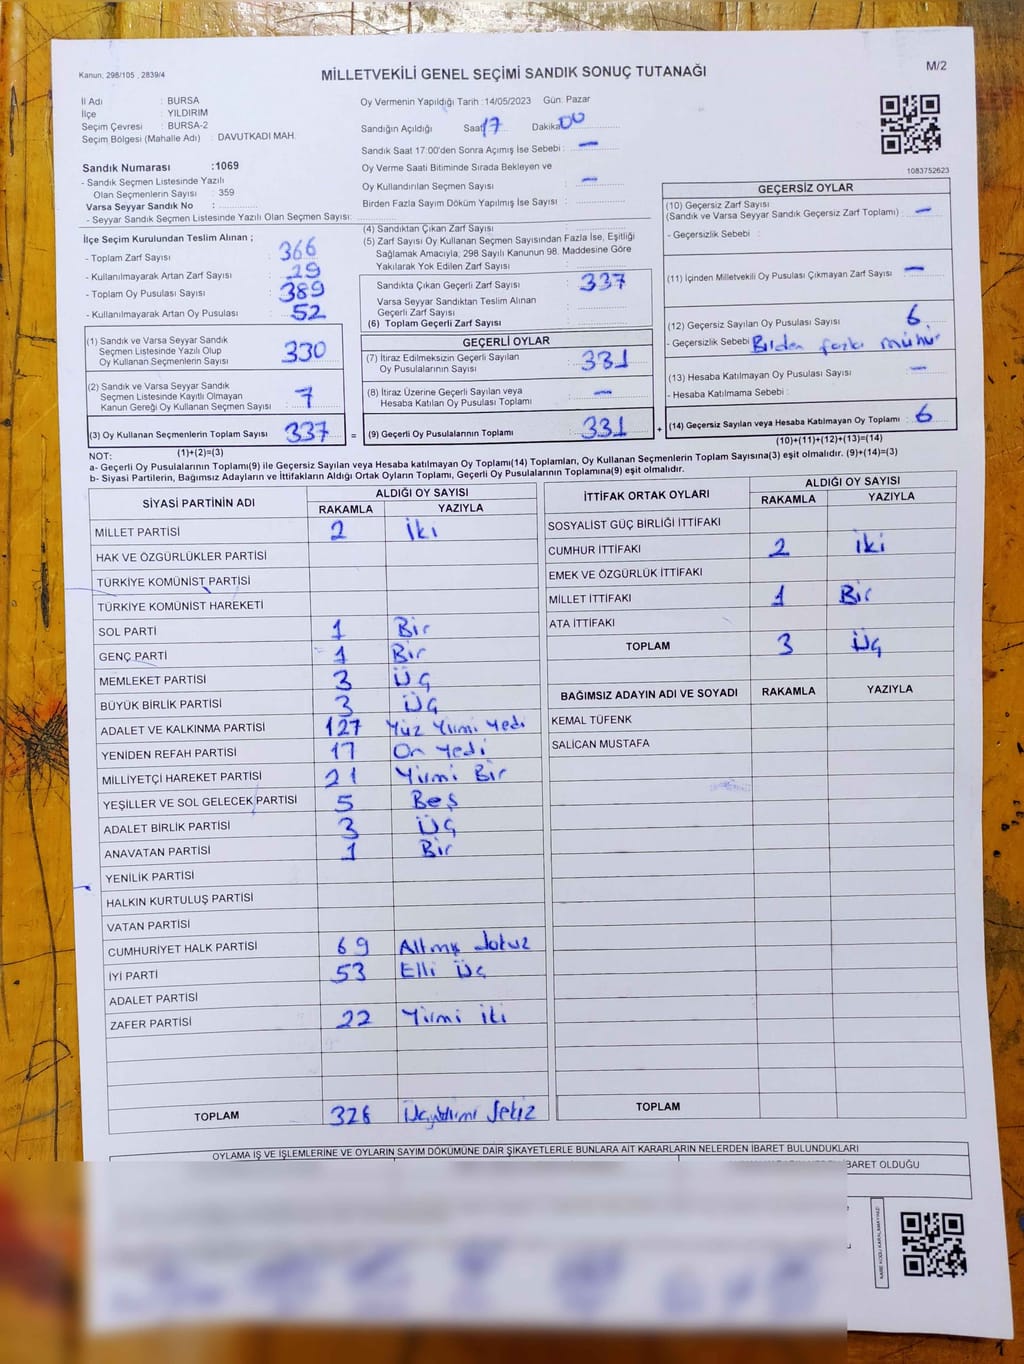 Kanun, 298/105 , 2839/4
MİLLETVEKİLİ GENEL SEÇİMİ SANDIK SONUÇ TUTANAĞI
M/2
İl Adı : BURSA
İlçe : YILDIRIM
Seçim Çevresi : BURSA-2
Seçim Bölgesi (Mahalle Adı) : DAVUTKADI MAH.
Oy Vermenin Yapıldığı Tarih :14/05/2023 Gün: Pazar
Sandığın Açıldığı Saat 17 Dakika 00
Sandık Saat 17:00'den Sonra Açımış İse Sebebi : —
Oy Verme Saati Bitiminde Sırada Bekleyen ve
Oy Kullandırılan Seçmen Sayısı : —
Birden Fazla Sayım Döküm Yapılmış İse Sayısı :
1083752623
Sandık Numarası :1069
- Sandık Seçmen Listesinde Yazılı
Olan Seçmenlerin Sayısı : 359
Varsa Seyyar Sandık No :
- Seyyar Sandık Seçmen Listesinde Yazılı Olan Seçmen Sayısı:
İlçe Seçim Kurulundan Teslim Alınan ;
- Toplam Zarf Sayısı : 366
- Kullanılmayarak Artan Zarf Sayısı : 29
- Toplam Oy Pusulası Sayısı : 389
- Kullanılmayarak Artan Oy Pusulası : 52
(1) Sandık ve Varsa Seyyar Sandık
Seçmen Listesinde Yazılı Olup
Oy Kullanan Seçmenlerin Sayısı : 330
(2) Sandık ve Varsa Seyyar Sandık
Seçmen Listesinde Kayıtlı Olmayan
Kanun Gereği Oy Kullanan Seçmen Sayısı : 7
(3) Oy Kullanan Seçmenlerin Toplam Sayısı : 337
(1)+(2)=(3)
(4) Sandıktan Çıkan Zarf Sayısı :
(5) Zarf Sayısı Oy Kullanan Seçmen Sayısından Fazla İse, Eşitliği
Sağlamak Amacıyla; 298 Sayılı Kanunun 98. Maddesine Göre
Yakılarak Yok Edilen Zarf Sayısı :
Sandıkta Çıkan Geçerli Zarf Sayısı : 337
Varsa Seyyar Sandıktan Teslim Alınan
Geçerli Zarf Sayısı :
(6) Toplam Geçerli Zarf Sayısı :
GEÇERLİ OYLAR
(7) İtiraz Edilmeksizin Geçerli Sayılan
Oy Pusulalarının Sayısı : 331
(8) İtiraz Üzerine Geçerli Sayılan veya
Hesaba Katılan Oy Pusulası Toplamı : —
= (9) Geçerli Oy Pusulalarının Toplamı : 331
GEÇERSİZ OYLAR
(10) Geçersiz Zarf Sayısı
(Sandık ve Varsa Seyyar Sandık Geçersiz Zarf Toplamı) : —
- Geçersizlik Sebebi :
(11) İçinden Milletvekili Oy Pusulası Çıkmayan Zarf Sayısı : —
(12) Geçersiz Sayılan Oy Pusulası Sayısı : 6
- Geçersizlik Sebebi Birden fazla mühür
(13) Hesaba Katılmayan Oy Pusulası Sayısı : —
- Hesaba Katılmama Sebebi :
+ (14) Geçersiz Sayılan veya Hesaba Katılmayan Oy Toplamı : 6
(10)+(11)+(12)+(13)=(14)
NOT:
a- Geçerli Oy Pusulalarının Toplamı(9) ile Geçersiz Sayılan veya Hesaba katılmayan Oy Toplamı(14) Toplamları, Oy Kullanan Seçmenlerin Toplam Sayısına(3) eşit olmalıdır. (9)+(14)=(3)
b- Siyasi Partilerin, Bağımsız Adayların ve İttifakların Aldığı Ortak Oyların Toplamı, Geçerli Oy Pusulalarının Toplamına(9) eşit olmalıdır.
SİYASİ PARTİNİN ADI ALDIĞI OY SAYISI
RAKAMLA YAZIYLA
MİLLET PARTİSİ 2 İki
HAK VE ÖZGÜRLÜKLER PARTİSİ
TÜRKİYE KOMÜNİST PARTİSİ
TÜRKİYE KOMÜNİST HAREKETİ
SOL PARTİ 1 Bir
GENÇ PARTİ 1 Bir
MEMLEKET PARTİSİ 3 Üç
BÜYÜK BİRLİK PARTİSİ 3 Üç
ADALET VE KALKINMA PARTİSİ 127 Yüz Yirmi Yedi
YENİDEN REFAH PARTİSİ 17 On Yedi
MİLLİYETÇİ HAREKET PARTİSİ 21 Yirmi Bir
YEŞİLLER VE SOL GELECEK PARTİSİ 5 Beş
ADALET BİRLİK PARTİSİ 3 Üç
ANAVATAN PARTİSİ 1 Bir
YENİLİK PARTİSİ
HALKIN KURTULUŞ PARTİSİ
VATAN PARTİSİ
CUMHURİYET HALK PARTİSİ 69 Altmış dokuz
İYİ PARTİ 53 Elli Üç
ADALET PARTİSİ
ZAFER PARTİSİ 22 Yirmi iki
TOPLAM 328 Üçyüzyirmi Sekiz
İTTİFAK ORTAK OYLARI ALDIĞI OY SAYISI
RAKAMLA YAZIYLA
SOSYALİST GÜÇ BİRLİĞİ İTTİFAKI
CUMHUR İTTİFAKI 2 İki
EMEK VE ÖZGÜRLÜK İTTİFAKI
MİLLET İTTİFAKI 1 Bir
ATA İTTİFAKI
TOPLAM 3 Üç
BAĞIMSIZ ADAYIN ADI VE SOYADI RAKAMLA YAZIYLA
KEMAL TÜFENK
SALİCAN MUSTAFA
TOPLAM
OYLAMA İŞ VE İŞLEMLERİNE VE OYLARIN SAYIM DÖKÜMÜNE DAİR ŞİKAYETLERLE BUNLARA AİT KARARLARIN NELERDEN İBARET BULUNDUKLARI
İBARET OLDUĞU